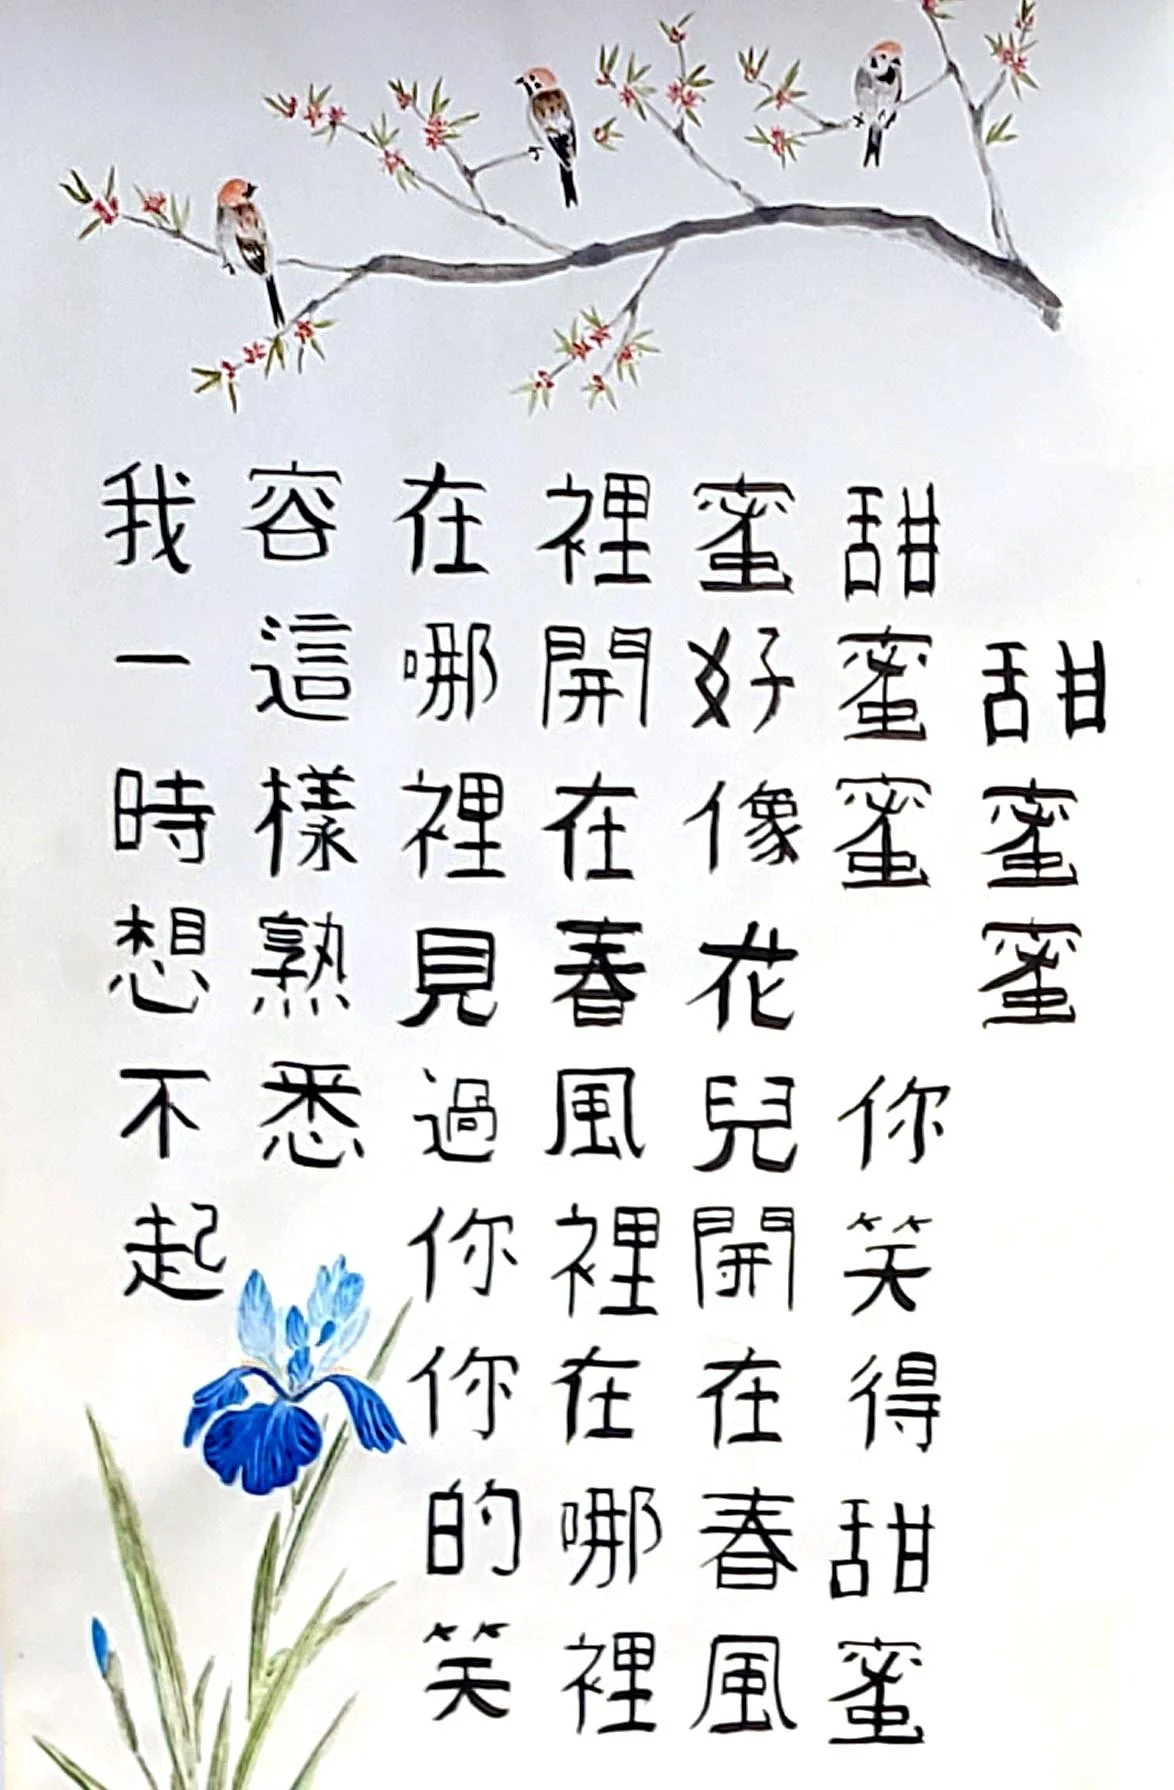 甜蜜蜜
甜蜜蜜 你笑得甜蜜
蜜好像花兒開在春風
裡開在春風裡在哪裡
在哪裡見過你你的笑
容這樣熟悉
我一時想不起